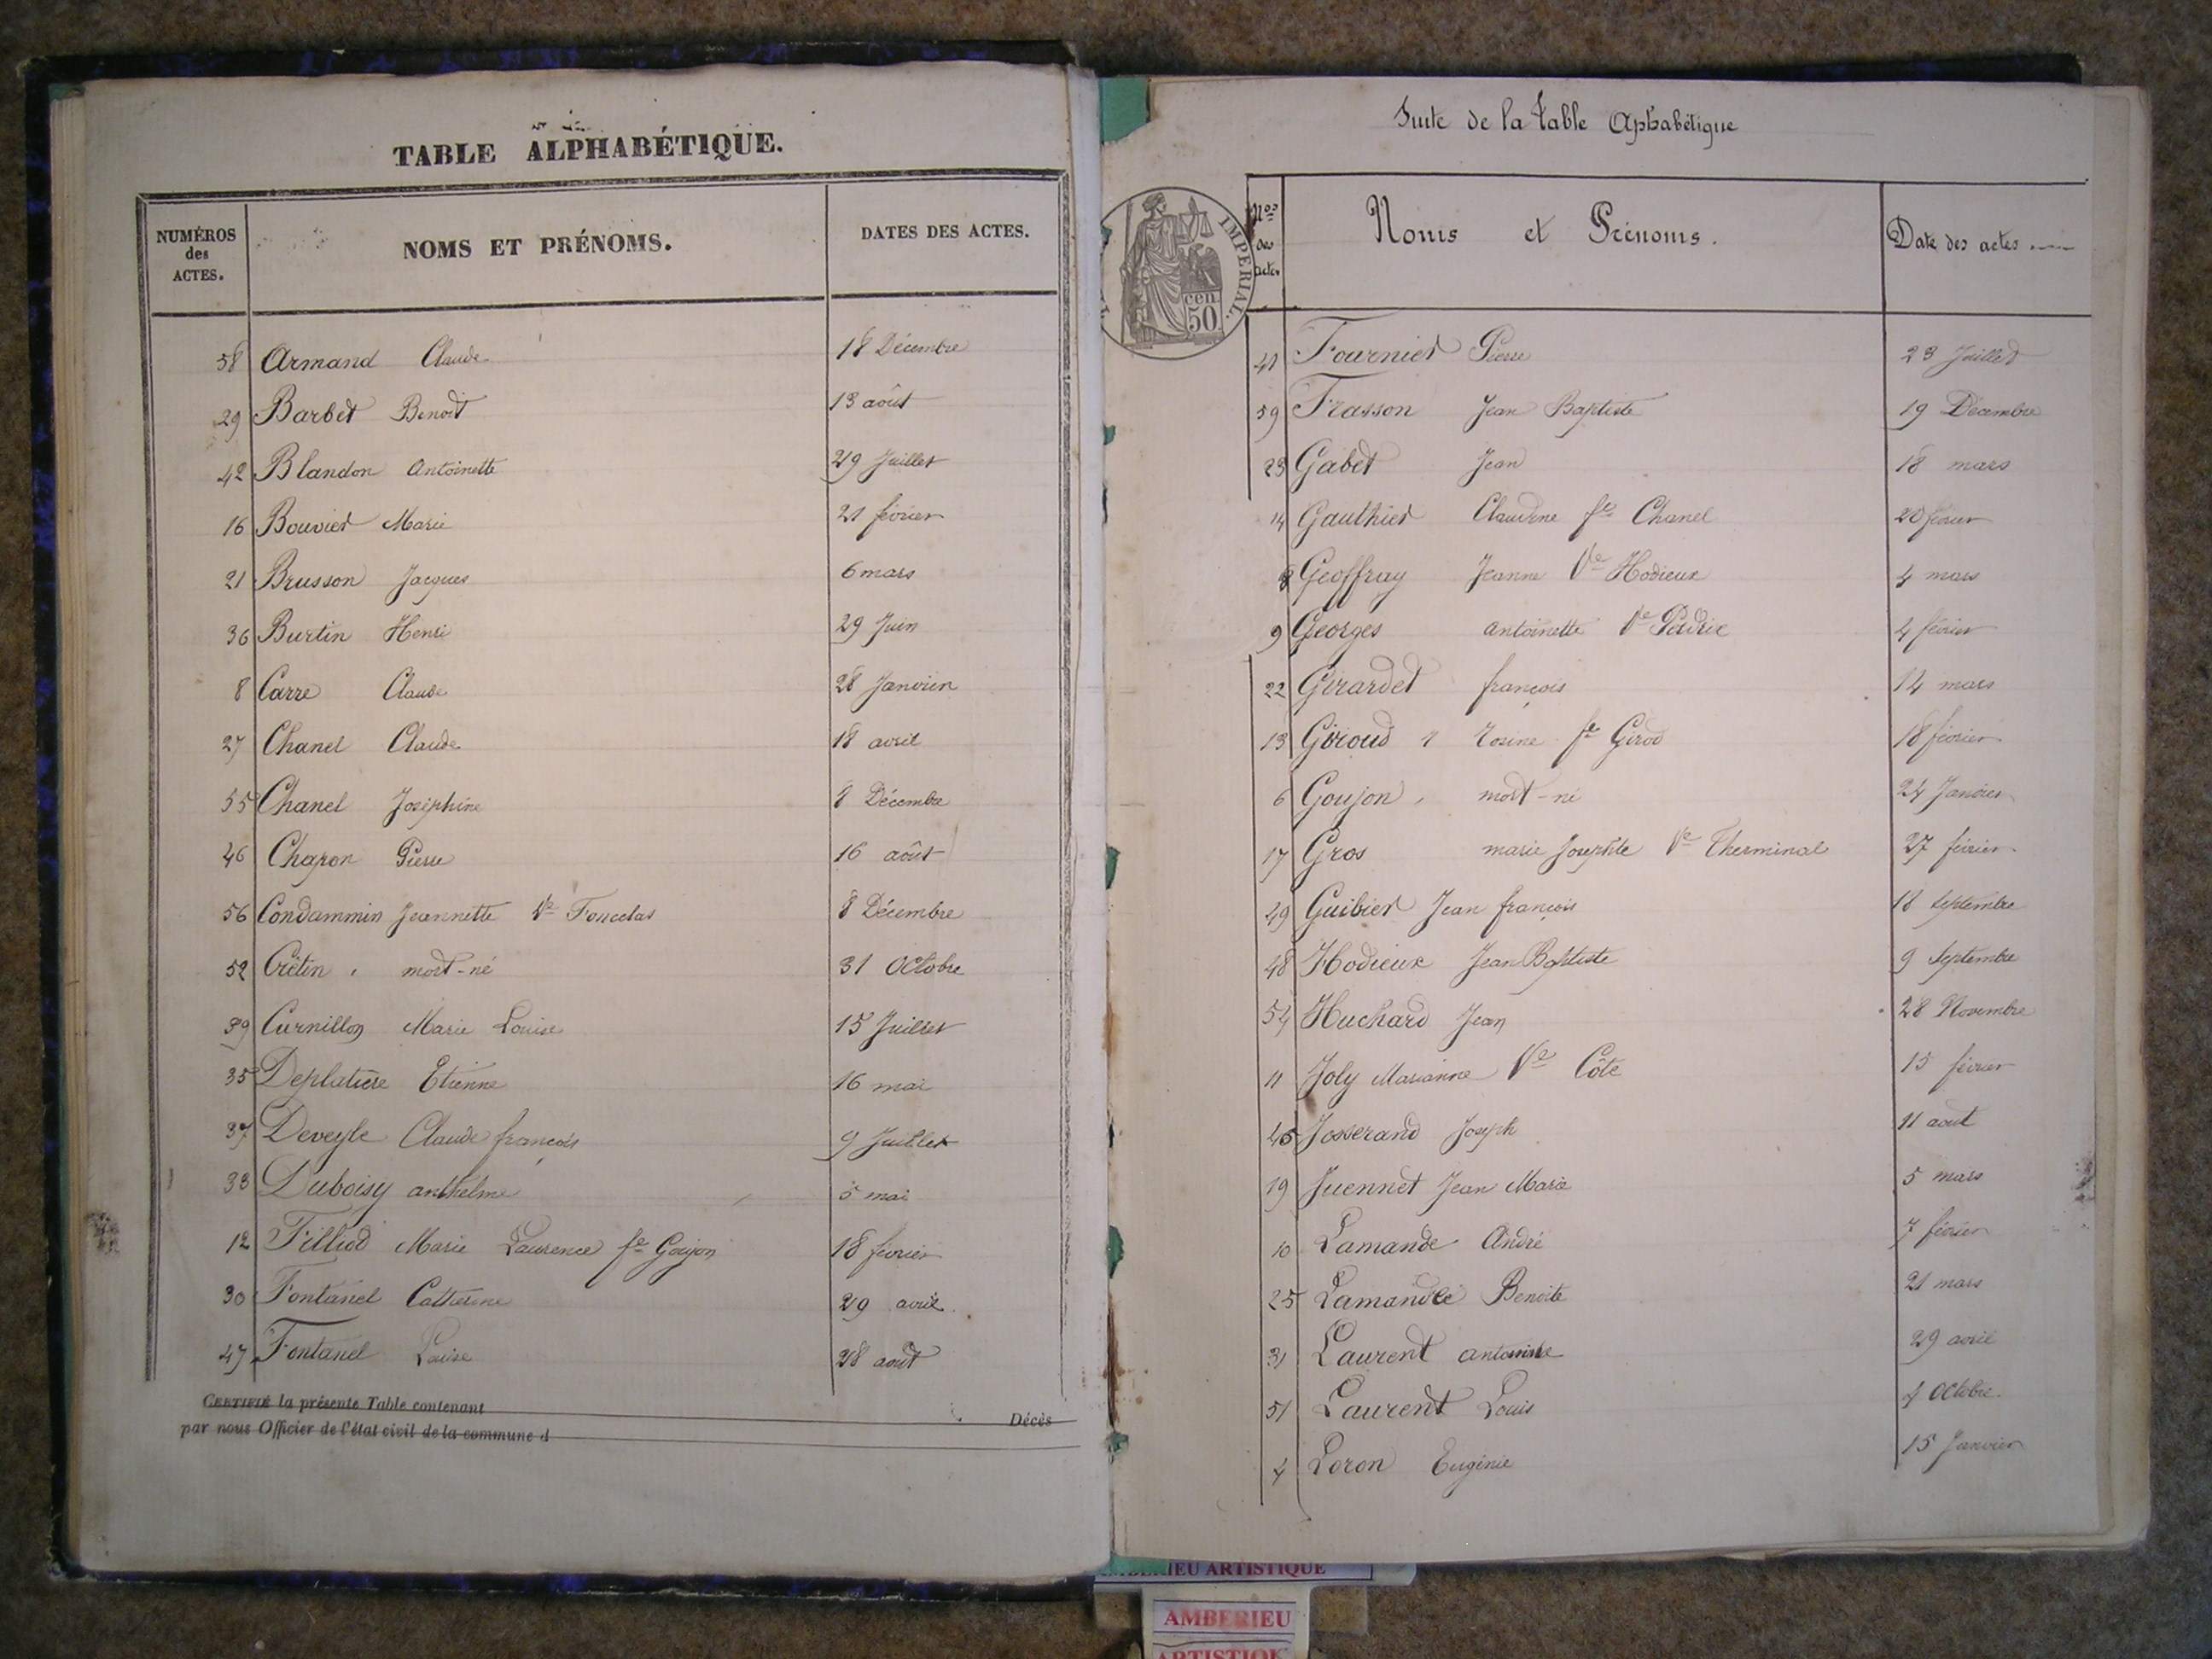 TABLE ALPHABÉTIQUE.
NUMÉROS des ACTES. NOMS ET PRÉNOMS. DATES DES ACTES.
58 Armand Claude 18 Décembre
29 Barbet Benoit 13 août
42 Blandon Antoinette 29 Juillet
16 Bouvier Marie 21 février
21 Brusson Jacques 6 mars
36 Burtin Henri 29 Juin
8 Carre Claude 28 Janvier
27 Chanel Claude 18 avril
55 Chanel Joséphine 8 Décembre
46 Chapon Pierre 16 août
56 Condammin Jeannette Ve 8 Décembre
52 Crétin, mort-né 31 Octobre
39 Curnillon Marie Louise 15 Juillet
35 Deplatière Etienne 16 mai
37 Deveyle Claude françois 9 Juillet
33 Duboisy anthelme 5 mai
12 Filliod Marie Laurence fe Goujon 18 février
30 Fontanel Catherine 29 avril
47 Fontanel Louise 28 août
CERTIFIÉ la présente Table contenant Décès
par nous Officier de l'état civil de la commune d
Suite de la Table Alphabétique
IMPERIAL.
cen. 50
Nos des actes Noms et Prénoms. Date des actes
41 Fournier Pierre 23 Juillet
59 Frasson Jean Baptiste 19 Décembre
23 Gabet Jean 18 mars
14 Gauthier Claudine fe Chanel 20 février
Geoffray Jeanne Ve Hodieux 4 mars
9 Georges antoinette Ve 4 février
22 Girardet françois 14 mars
13 Giroud Rosine fe Girod 18 février
6 Goujon, mort-né 24 Janvier
17 Gros marie Josephte Ve Therminal 27 février
49 Guibier Jean françois 18 Septembre
48 Hodieux Jean Baptiste 9 Septembre
54 Huchard Jean 28 Novembre
11 Joly Marianne Ve Côte 15 février
45 Josserand Joseph 11 aout
19 Juennet Jean Marie 5 mars
10 Lamande André 7 février
25 Benoite 21 mars
31 Laurent antoinette 29 avril
51 Laurent Louis Octobre
4 Loron Eugénie 15 Janvier
IEU ARTISTIQUE
AMBERIEU
ARTISTIQ